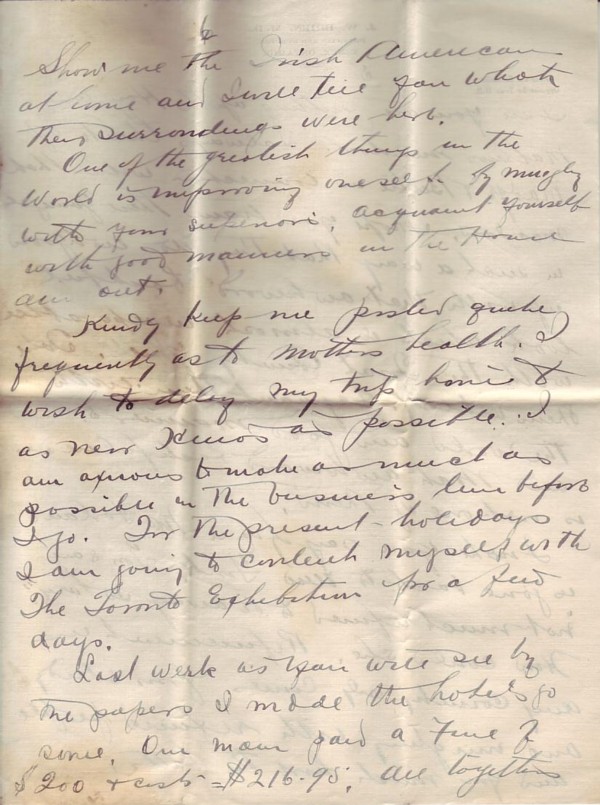 6
Show me the Irish American
at home and I will tell you what
their surroundings were here.
One of the greatest things in the
World is improving oneself by mingling
with your superiors, acquaint yourself
with good manners in the House
and out.
Kindly keep me posted quite
frequently as to Mothers health. I
wish to delay my trip home to
as near Xmas as possible. I
am axious to make as much as
possible in the business line before
I go. For the present holidays
I am going to content myself with
The Toronto Exhibition for a few
days.
Last week as you will see by
the papers I made the hotels go
some. One man paid a Fine of
$200 + costs = $216.95, all together